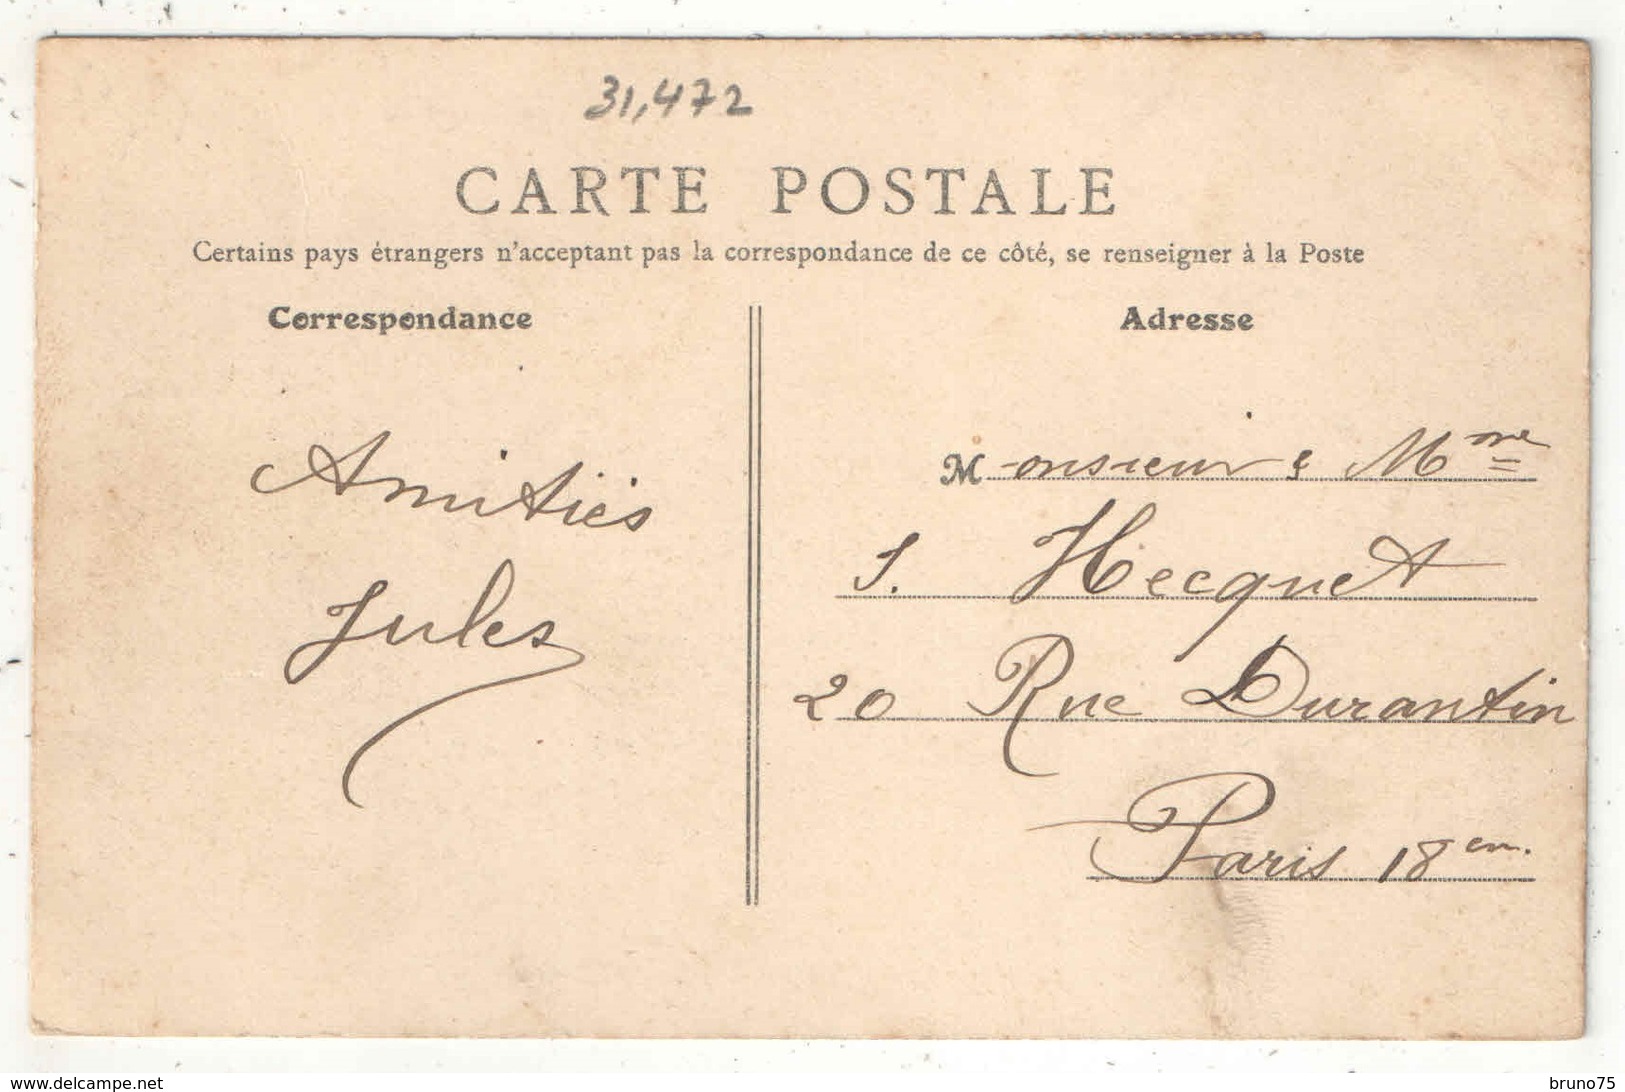 31,472
CARTE POSTALE
Certains pays étrangers n'acceptant pas la correspondance de ce côté, se renseigner à la Poste
Correspondance
Amitiés
Jules
Adresse
Monsieur & Mme
J. Hecquet
20 Rue Durantin
Paris 18em.
www.delcampe.net
bruno75